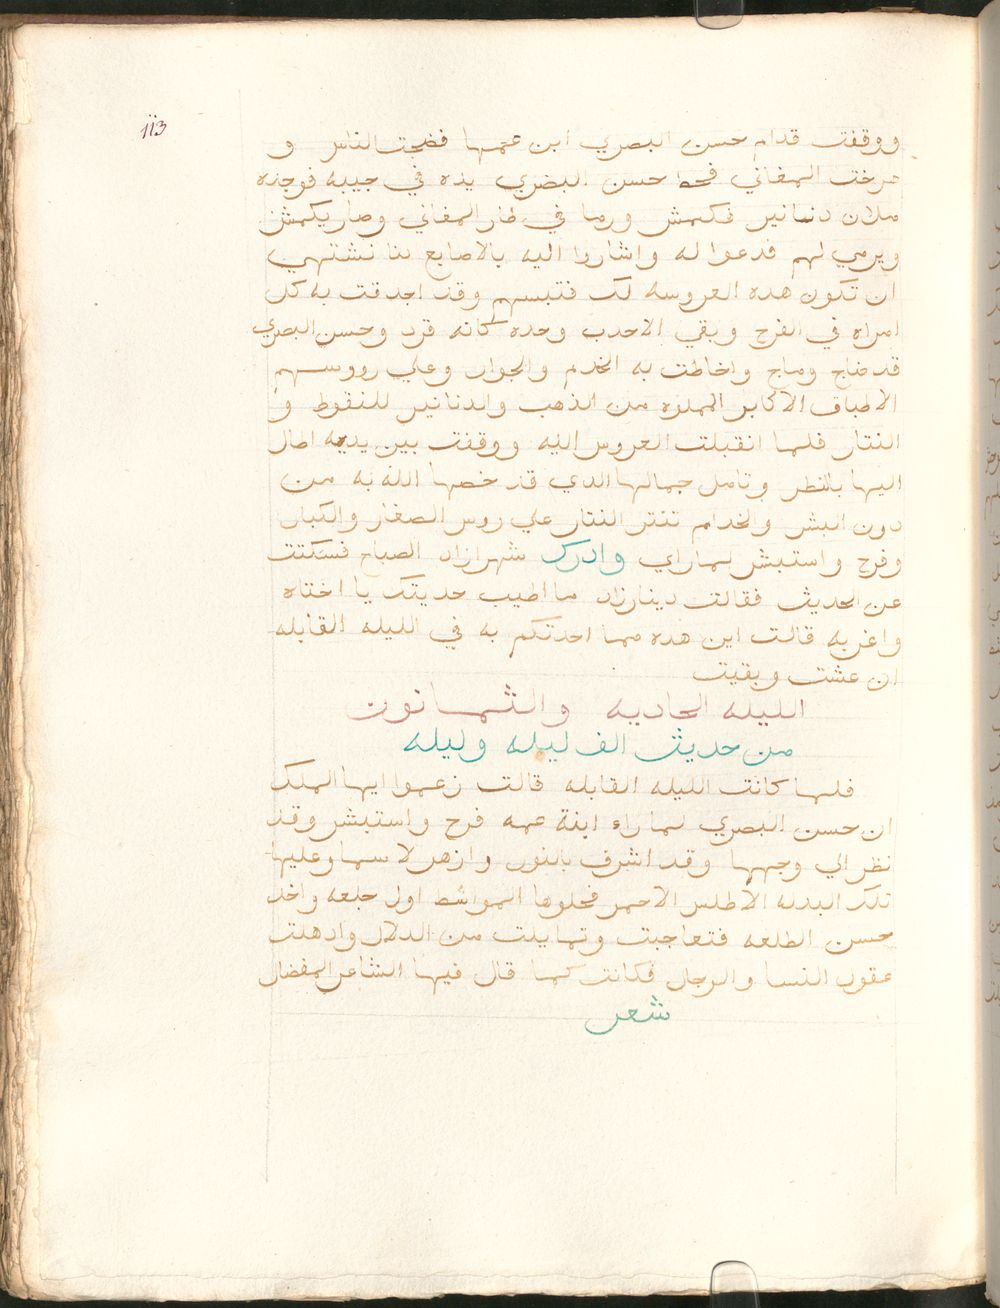 113
ووقفت قدام حسن البصري ابن عمها فضجت الناس و
صرخت المغاني فحط حسن البصري يده في جيبه فوجده
ملان دنانير فكمش ورما في طار المغاني وصار يكمش
ويرمي لهم فدعوا له واشاروا اليه بالاصابع نشتهي
ان تكون هده العروسه لك فتبسم وقد احدقت به كل
امراه في الفرح وبقي الاحدب وحده كانه قرد وحسن البصري
قد ضاج وماج واحاطت به الخدم والجوار وعلي رووسهم
الاطباق الاكابر المملوه من الذهب والدنانير للنقوط و
النتار فلما انقبلت العروس اليه ووقفت بين يديه اطال
اليها بالنظر وتامل جمالها الدي قد خصها الله به من
دون البشر والخدام تنتر النتار علي روس الصغار والكبار
وفرح واستبشر لما راي وادرك شهرازاد الصباح فسكتت
عن الحديث فقالت دينارزاد ما اطيب حديتك يا اختاه
واغربه قالت اين هده مما احدتكم به في الليله القابله
ان عشت وبقيت
الليله الحاديه والثمانون
من حديث الف ليله وليله
فلما كانت الليله القابله قالت زعموا ايها الملك
ان حسن البصري لما راء ابنة عمه فرح واستبشر وقد
نظر الي وجهها وقد اشرق بالنور وازهر لا سما وعليها
تلك البدله الاطلس الاحمر فجلوها المواشط اول خلعه واخد
حسن الطلعه فتعاجبت وتمايلت من الدلال وادهلت
عقول النسا والرجال فكانت كما قال فيها الشاعر المفضال
شعر